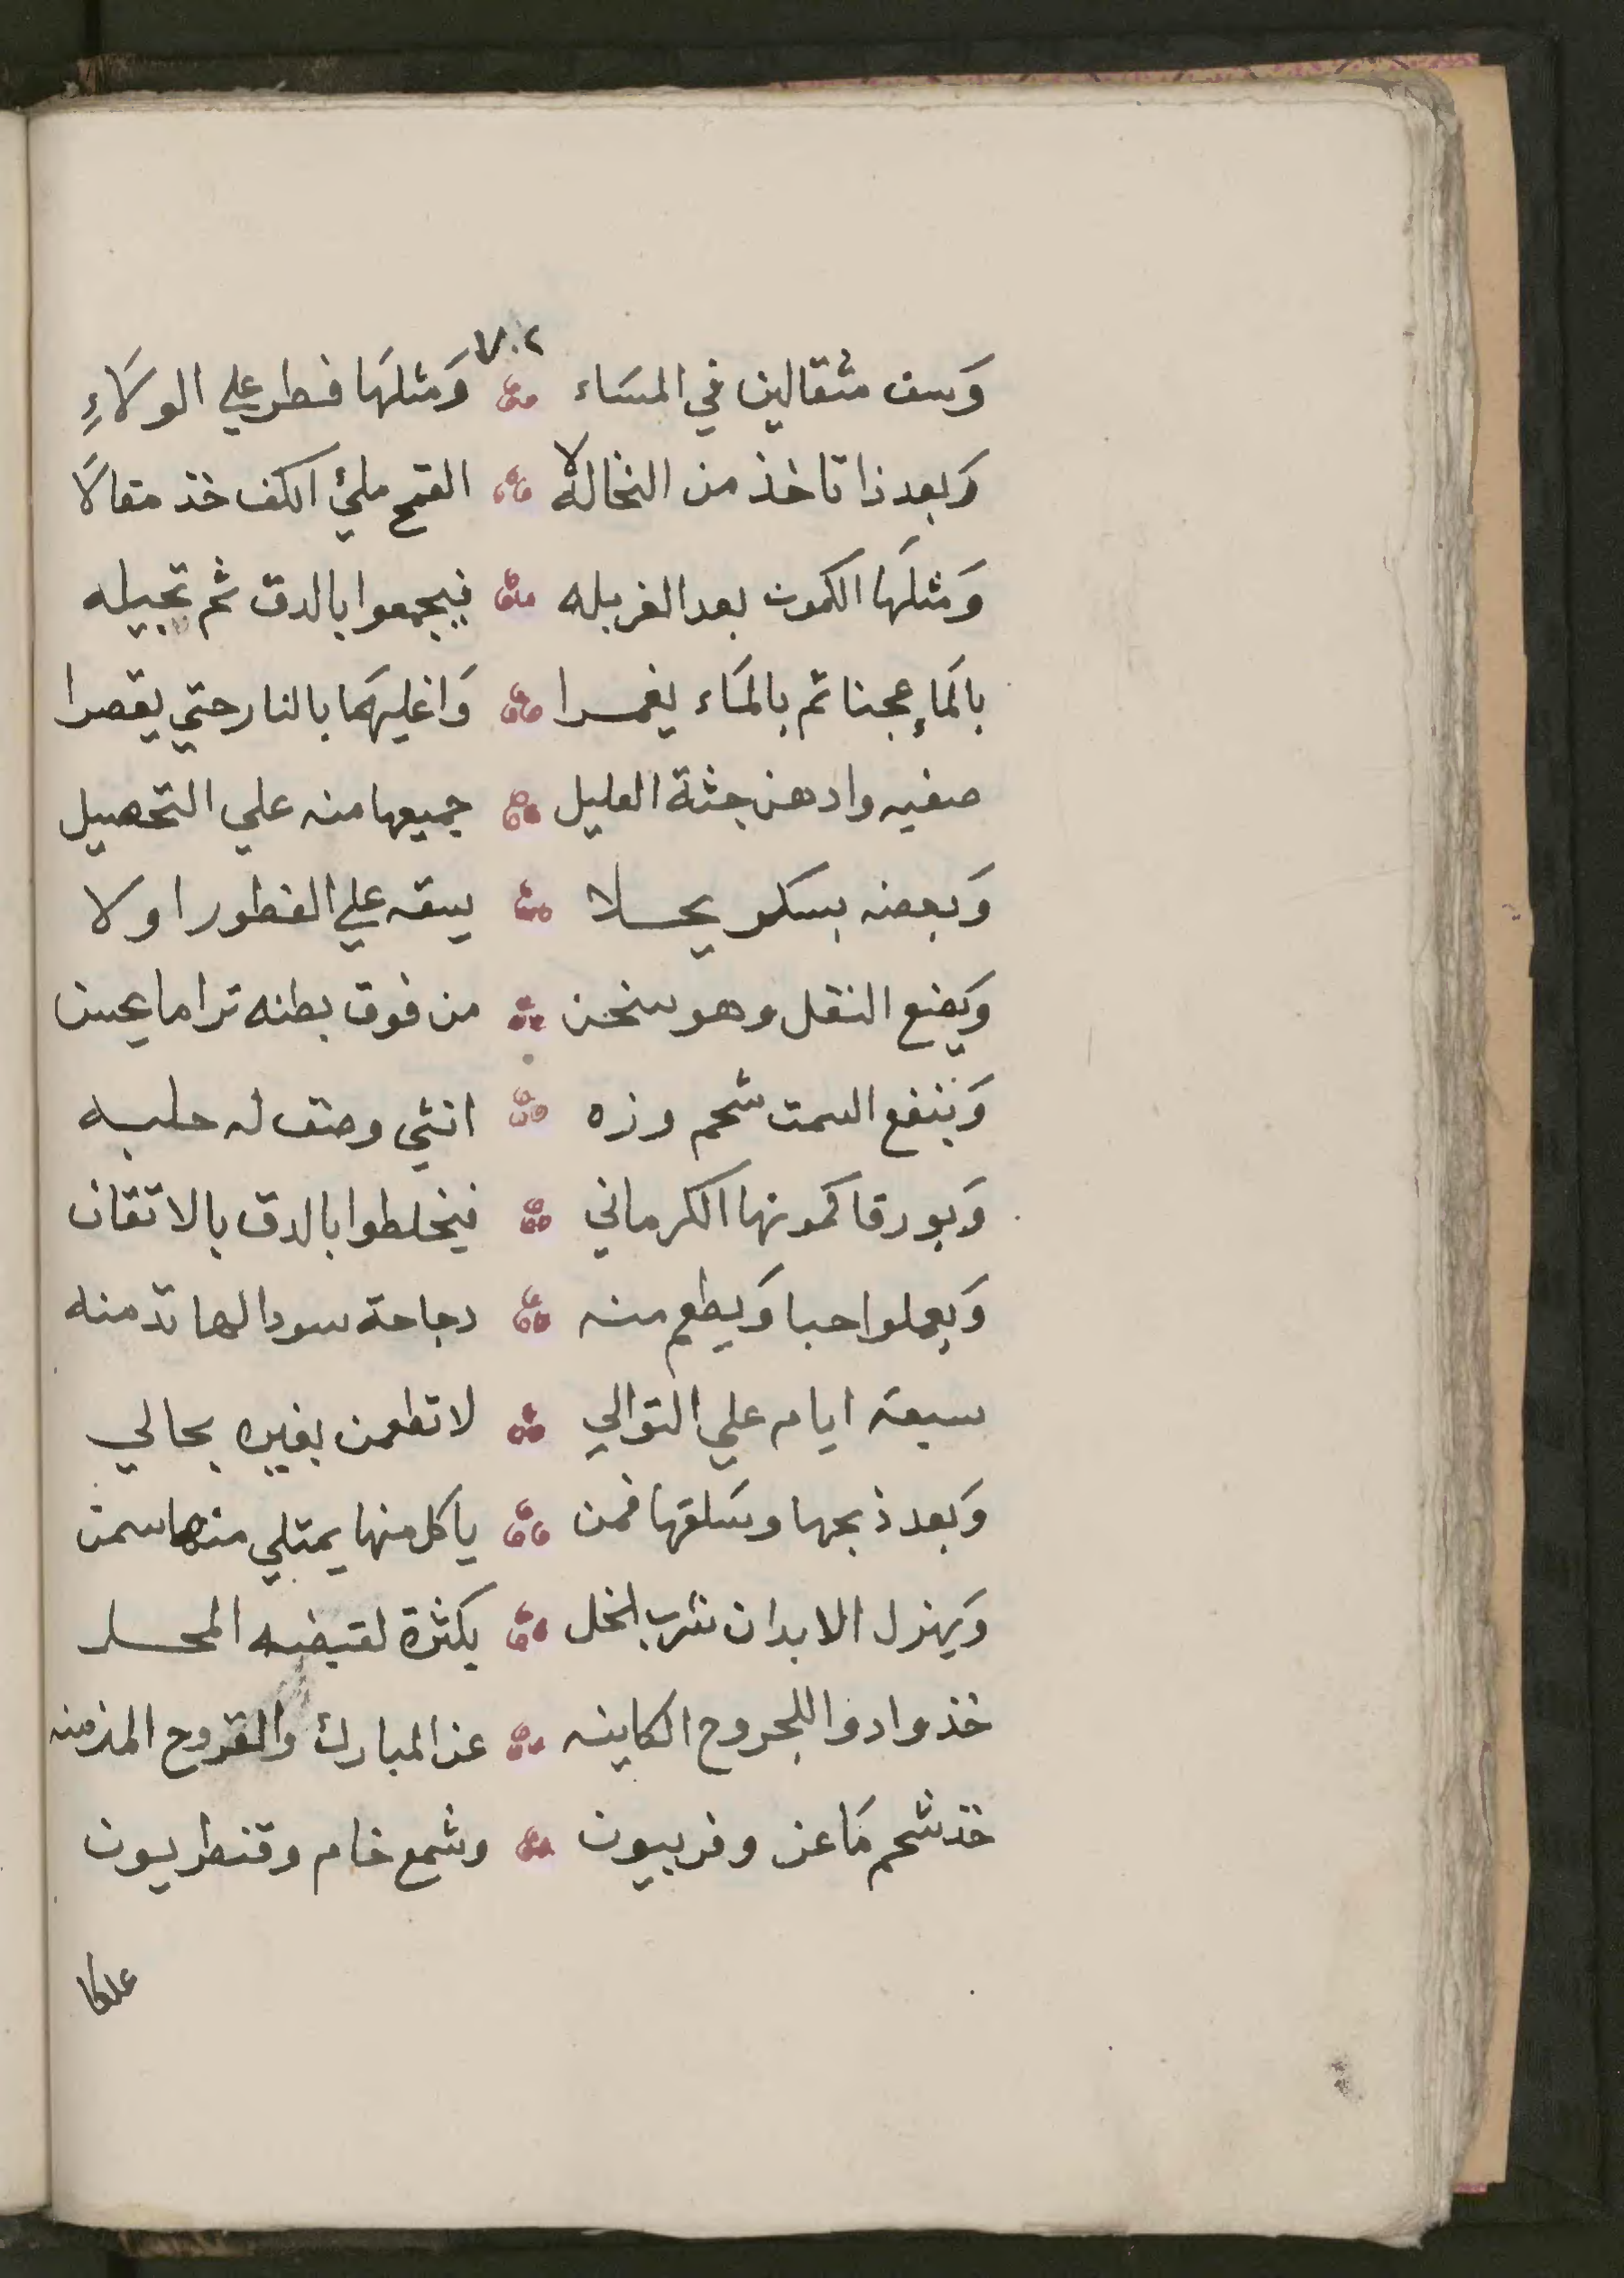 ٧٠٢
وَسف مثقالين في المسَاء وَمثلهَا فطر علي الولَاءِ
وَبعد ذا تاخذ من النخاله لا القمح ملئ الكف خذ مقالًا
وَمثلهَا الكمون بعد الغربله فيجمعوا بالدق ثم تجبله
بالمَاءِ عجنا ثم بالمَاء يغمرا وَاغليهَما بالنار حتي يقصرا
صفيه وادهن جثة العليل جميعها منه علي التحصيل
وَبعضه بسكر يحلا يسقه علي الفطور اولا
وَيضع الثقل وهو سخن من فوق بطنه ترا ما يحسن
وَينفع السمت شحم وزه انثي وصف له حلبه
وَبورقا كمونها الكرماني فيخلطوا بالدق بالاتقان
وَيعملوا حبا وَيطعم منه دجاجة سودا لها تدمنه
سبعة ايام علي التوالي لا تطعمن بغيره بحالي
وَبعد ذبحها وسَلقها فمن ياكل منها يمتلي منها سمن
وَيهزل الابدان شرب الخل بكثرة
خذ وادوا للجروح الكاينه عن المبارك والقروح المزمنه
خذ شحم مَاعز وفربيون وشمع خام وقنطريون
علكا